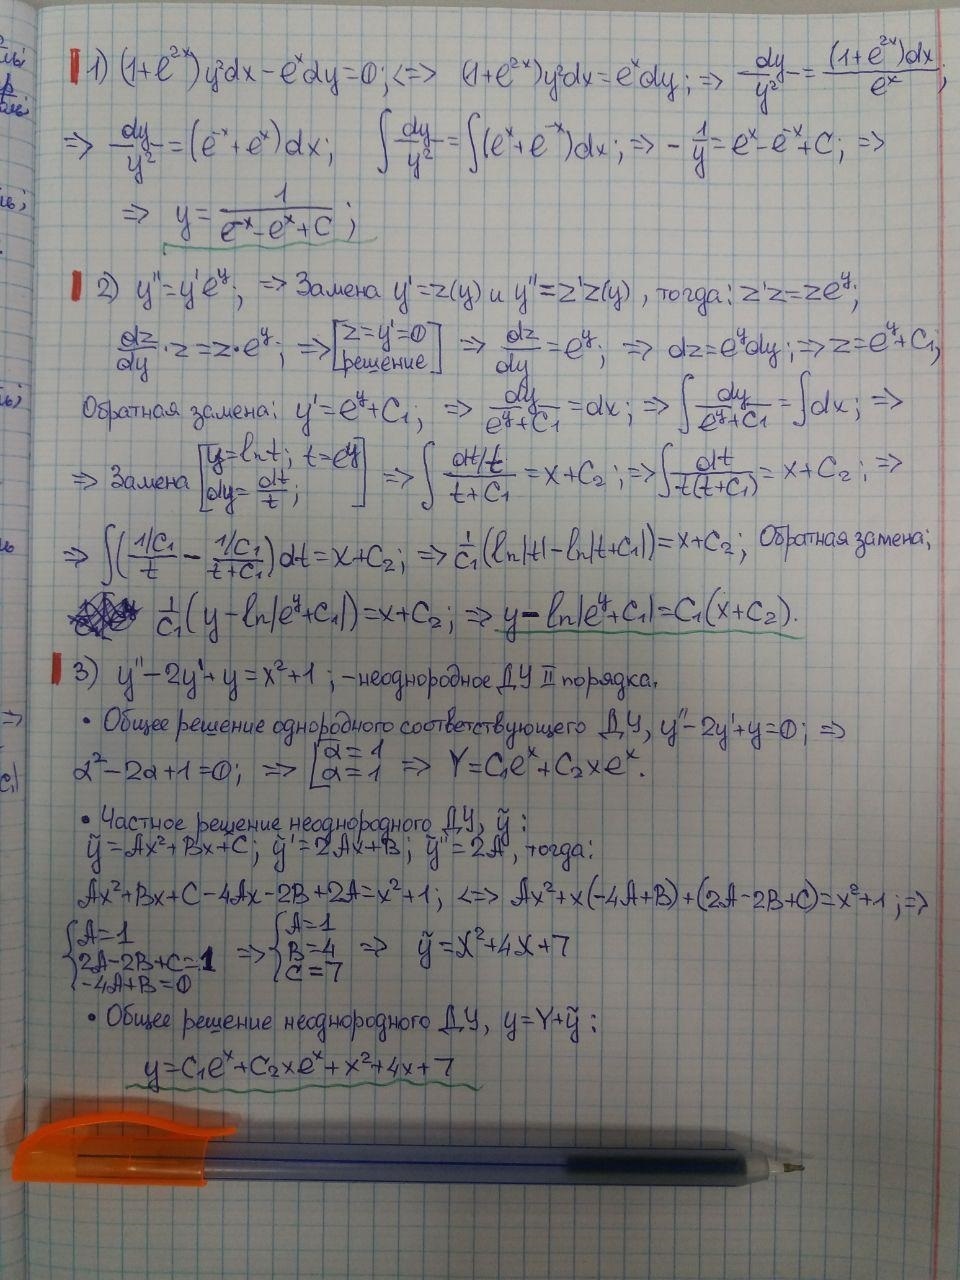 1) (1+e^{2x})y²dx - e^x dy = 0; <=> (1+e^{2x})y²dx = e^x dy; => dy/y² = (1+e^{2x})dx/e^x;
=> dy/y² = (e^{-x}+e^x)dx; ∫dy/y² = ∫(e^x+e^{-x})dx; => -1/y = e^x - e^{-x} + C; =>
=> y = 1/(e^{-x} - e^x + C);
2) y'' = y'e^y; => Замена y' = z(y) и y'' = z'z(y), тогда: z'z = ze^y;
dz/dy · z = z · e^y; => [z = y' = 0 решение] => dz/dy = e^y; => dz = e^y dy; => z = e^y + C₁;
Обратная замена: y' = e^y + C₁; => dy/(e^y + C₁) = dx; => ∫dy/(e^y + C₁) = ∫dx; =>
=> Замена [y = ln t; t = e^y dy = dt/t;] => ∫(dt/t)/(t + C₁) = x + C₂; => ∫dt/(t(t + C₁)) = x + C₂; =>
=> ∫((1/C₁)/t - (1/C₁)/(t + C₁))dt = x + C₂; => 1/C₁(ln|t| - ln|t + C₁|) = x + C₂; Обратная замена;
1/C₁(y - ln|e^y + C₁|) = x + C₂; => y - ln|e^y + C₁| = C₁(x + C₂).
3) y'' - 2y' + y = x² + 1; - неоднородное ДУ II порядка.
• Общее решение однородного соответствующего ДУ, y'' - 2y' + y = 0; =>
α² - 2α + 1 = 0; => [α = 1 α = 1 => Y = C₁e^x + C₂xe^x.
• Частное решение неоднородного ДУ, ỹ:
ỹ = Ax² + Bx + C; ỹ' = 2Ax + B; ỹ'' = 2A, тогда:
Ax² + Bx + C - 4Ax - 2B + 2A = x² + 1; <=> Ax² + x(-4A + B) + (2A - 2B + C) = x² + 1; =>
{A = 1 2A - 2B + C = 1 -4A + B = 0 => {A = 1 B = 4 C = 7 => ỹ = x² + 4x + 7
• Общее решение неоднородного ДУ, y = Y + ỹ:
y = C₁e^x + C₂xe^x + x² + 4x + 7